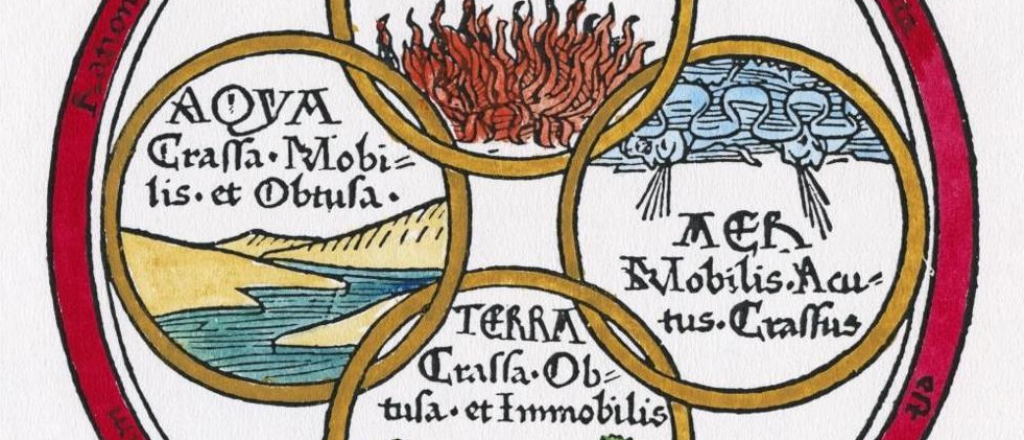 AQVA
Crassa · Mobi=
lis · et Obtusa ·
AER
Mobilis · Acu=
tus · Crassus
TERRA
Crassa · Ob=
tusa · et Immobilis